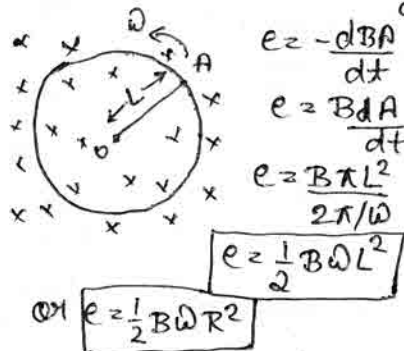 ω
A
L
O
e = -dBA/dt
e = BdA/dt
e = BπL²/2π/ω
e = 1/2 BωL²
or e = 1/2 BωR²